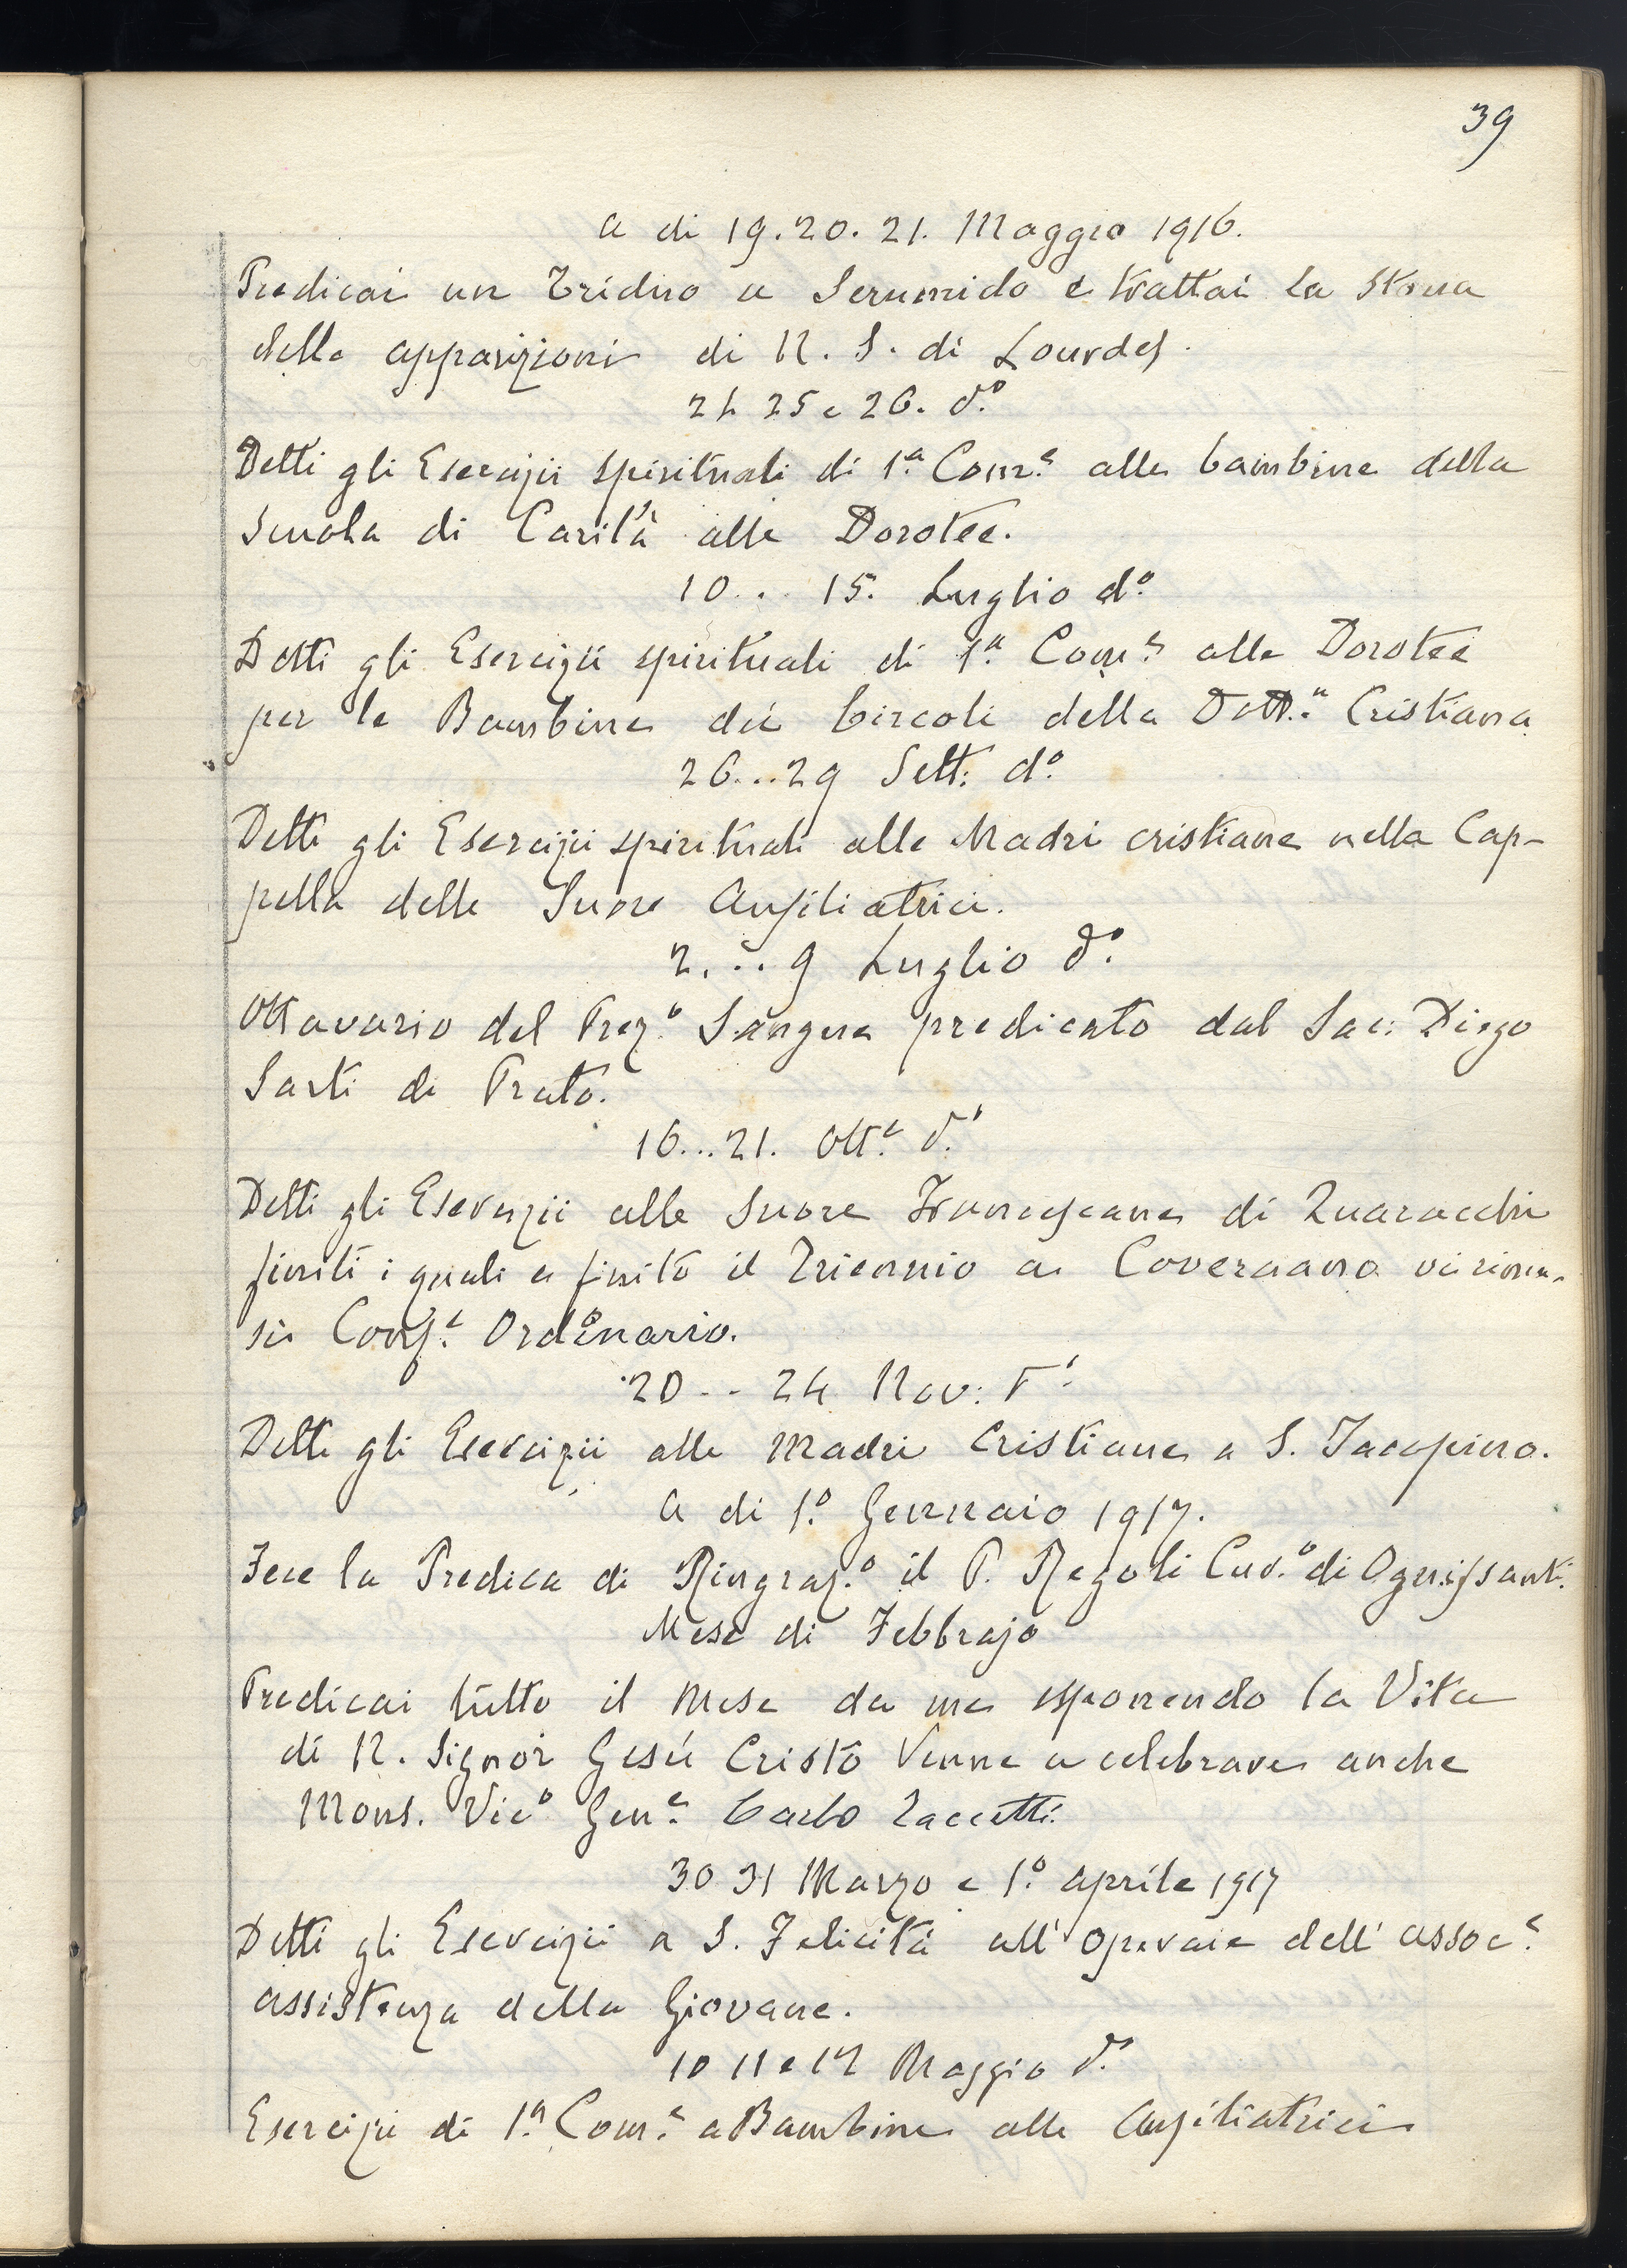 39
A di 19. 20. 21. Maggio 1916.
Predicai un Triduo a Serumido e trattai la Storia
delle apparizioni di N. S. di Lourdes.
24 25 e 26. d.º
Detti gli Esercizii spirituali di 1.ª Com.e alle bambine della
Scuola di Carità alle Dorotee.
10... 15. Luglio d.º
Detti gli Esercizii spirituali di 1.ª Com.e alle Dorotee
per le Bambine dei Circoli della Dott.a Cristiana
26...29 Sett: d.º
Detti gli Esercizii spirituali alle Madri cristiane nella Cap-
pella delle Suore Ausiliatrici.
2...9 Luglio d.º
Ottavario del Prez.o Sangue predicato dal Sac: Diego
Sarti di Prato.
16...21. Ott.e d.º
Detti gli Esercizii alle Suore Francescane di Quaracchi
finiti i quali e finito il Triennio a Coverciano vi rima-
si Conf.e Ordinario.
20 -- 24 Nov: d.º
Detti gli Esercizii alle Madri Cristiane a S. Jacopino.
A di 1.º Gennaio 1917.
Fece la Predica di Ringraz.o il P. Regoli Cur.o di Ognissanti.
Mese di Febbrajo
Predicai tutto il Mese da me esponendo la Vita
di N. Signor Gesù Cristo Venne a celebrare anche
Mons. Vic.o Gen.e Carlo Zaccetti.
30 31 Marzo e 1.º Aprile 1917
Detti gli Esercizii a S. Felicità all' Operaie dell' Assoc.e
assistenza della Giovane.
10 11 e 12 Maggio d.º
Esercizii di 1.ª Com.e a Bambine alle Ausiliatrici